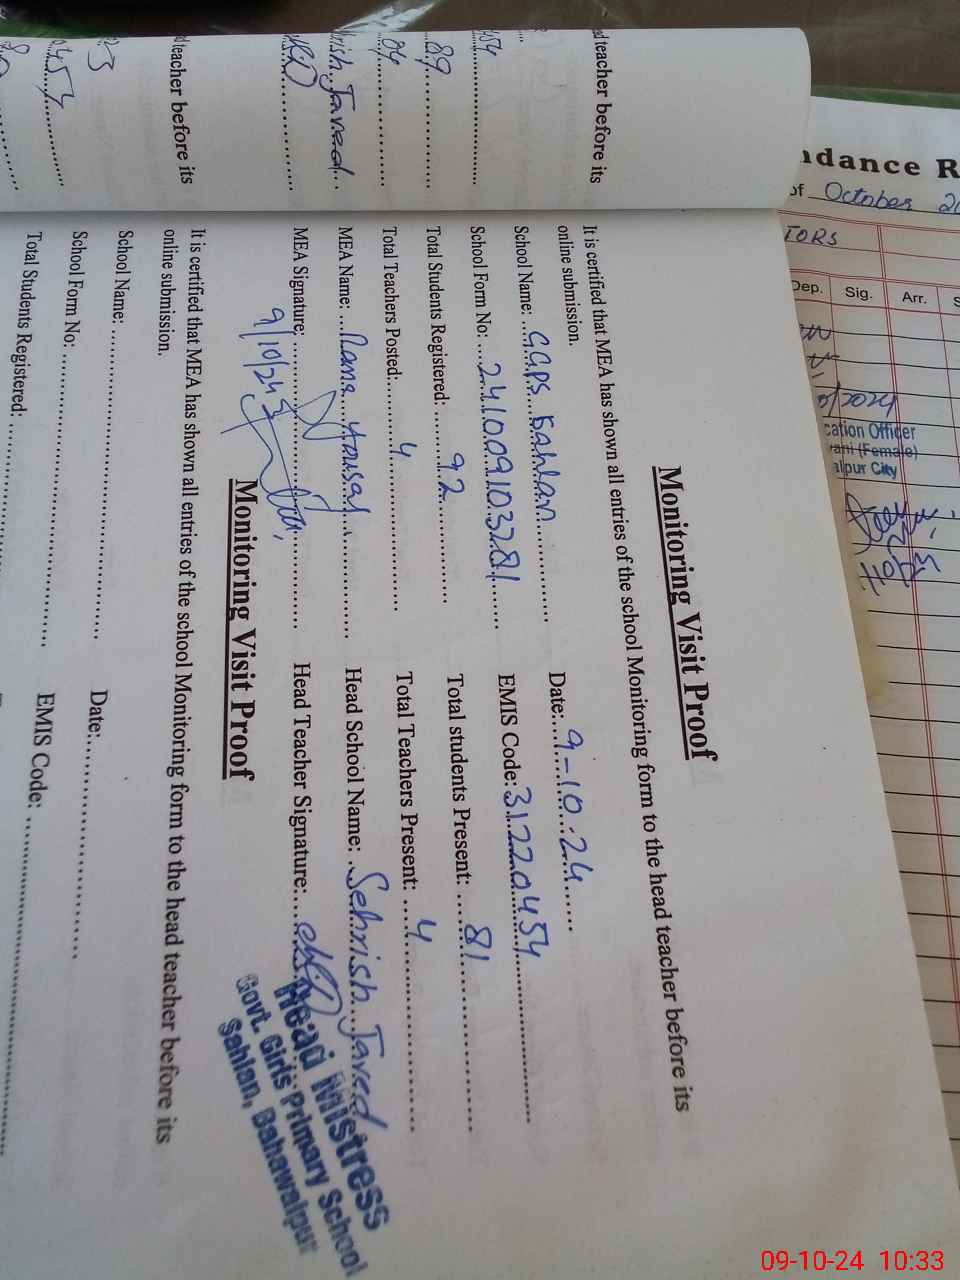 Monitoring Visit Proof
It is certified that MEA has shown all entries of the school Monitoring form to the head teacher before its
online submission.
School Name: ...GGPS Bahlan............ Date:.....9-10-24......
School Form No: ...241009103281...... EMIS Code:31220454
Total Students Registered: .........92......... Total students Present: ......81......
Total Teachers Posted:.........4......... Total Teachers Present: ....4......
MEA Name: ...Rana Yousaf......... Head School Name: ...Sehrish Javed
MEA Signature: ............ Head Teacher Signature:............
9/10/24
Head Mistress
Govt. Girls Primary School
Sahlan, Bahawalpur
Monitoring Visit Proof
It is certified that MEA has shown all entries of the school Monitoring form to the head teacher before its
online submission.
School Name: ............ Date:............
School Form No: ............ EMIS Code: ............
Total Students Registered: ............
d teacher before its
454
89
04
rish Javed
d teacher before its
23
0454
80
ndance R
of October 20
TORS
Dep. Sig. Arr. S
0/2024
cation Officer
vani (Female)
alpur City
09-10-24 10:33